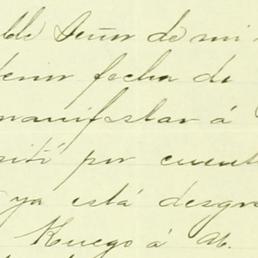 ble Señor de mi
fecha de
manifestar á
sité por cuent
ya está desgra
Ruego á